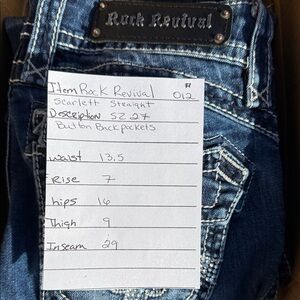 Rock Revival
Item Rock Revival # 012
Scarlett Straight
Description SZ 27
Button Back pockets
waist 13.5
Rise 7
hips 16
Thigh 9
Inseam 29